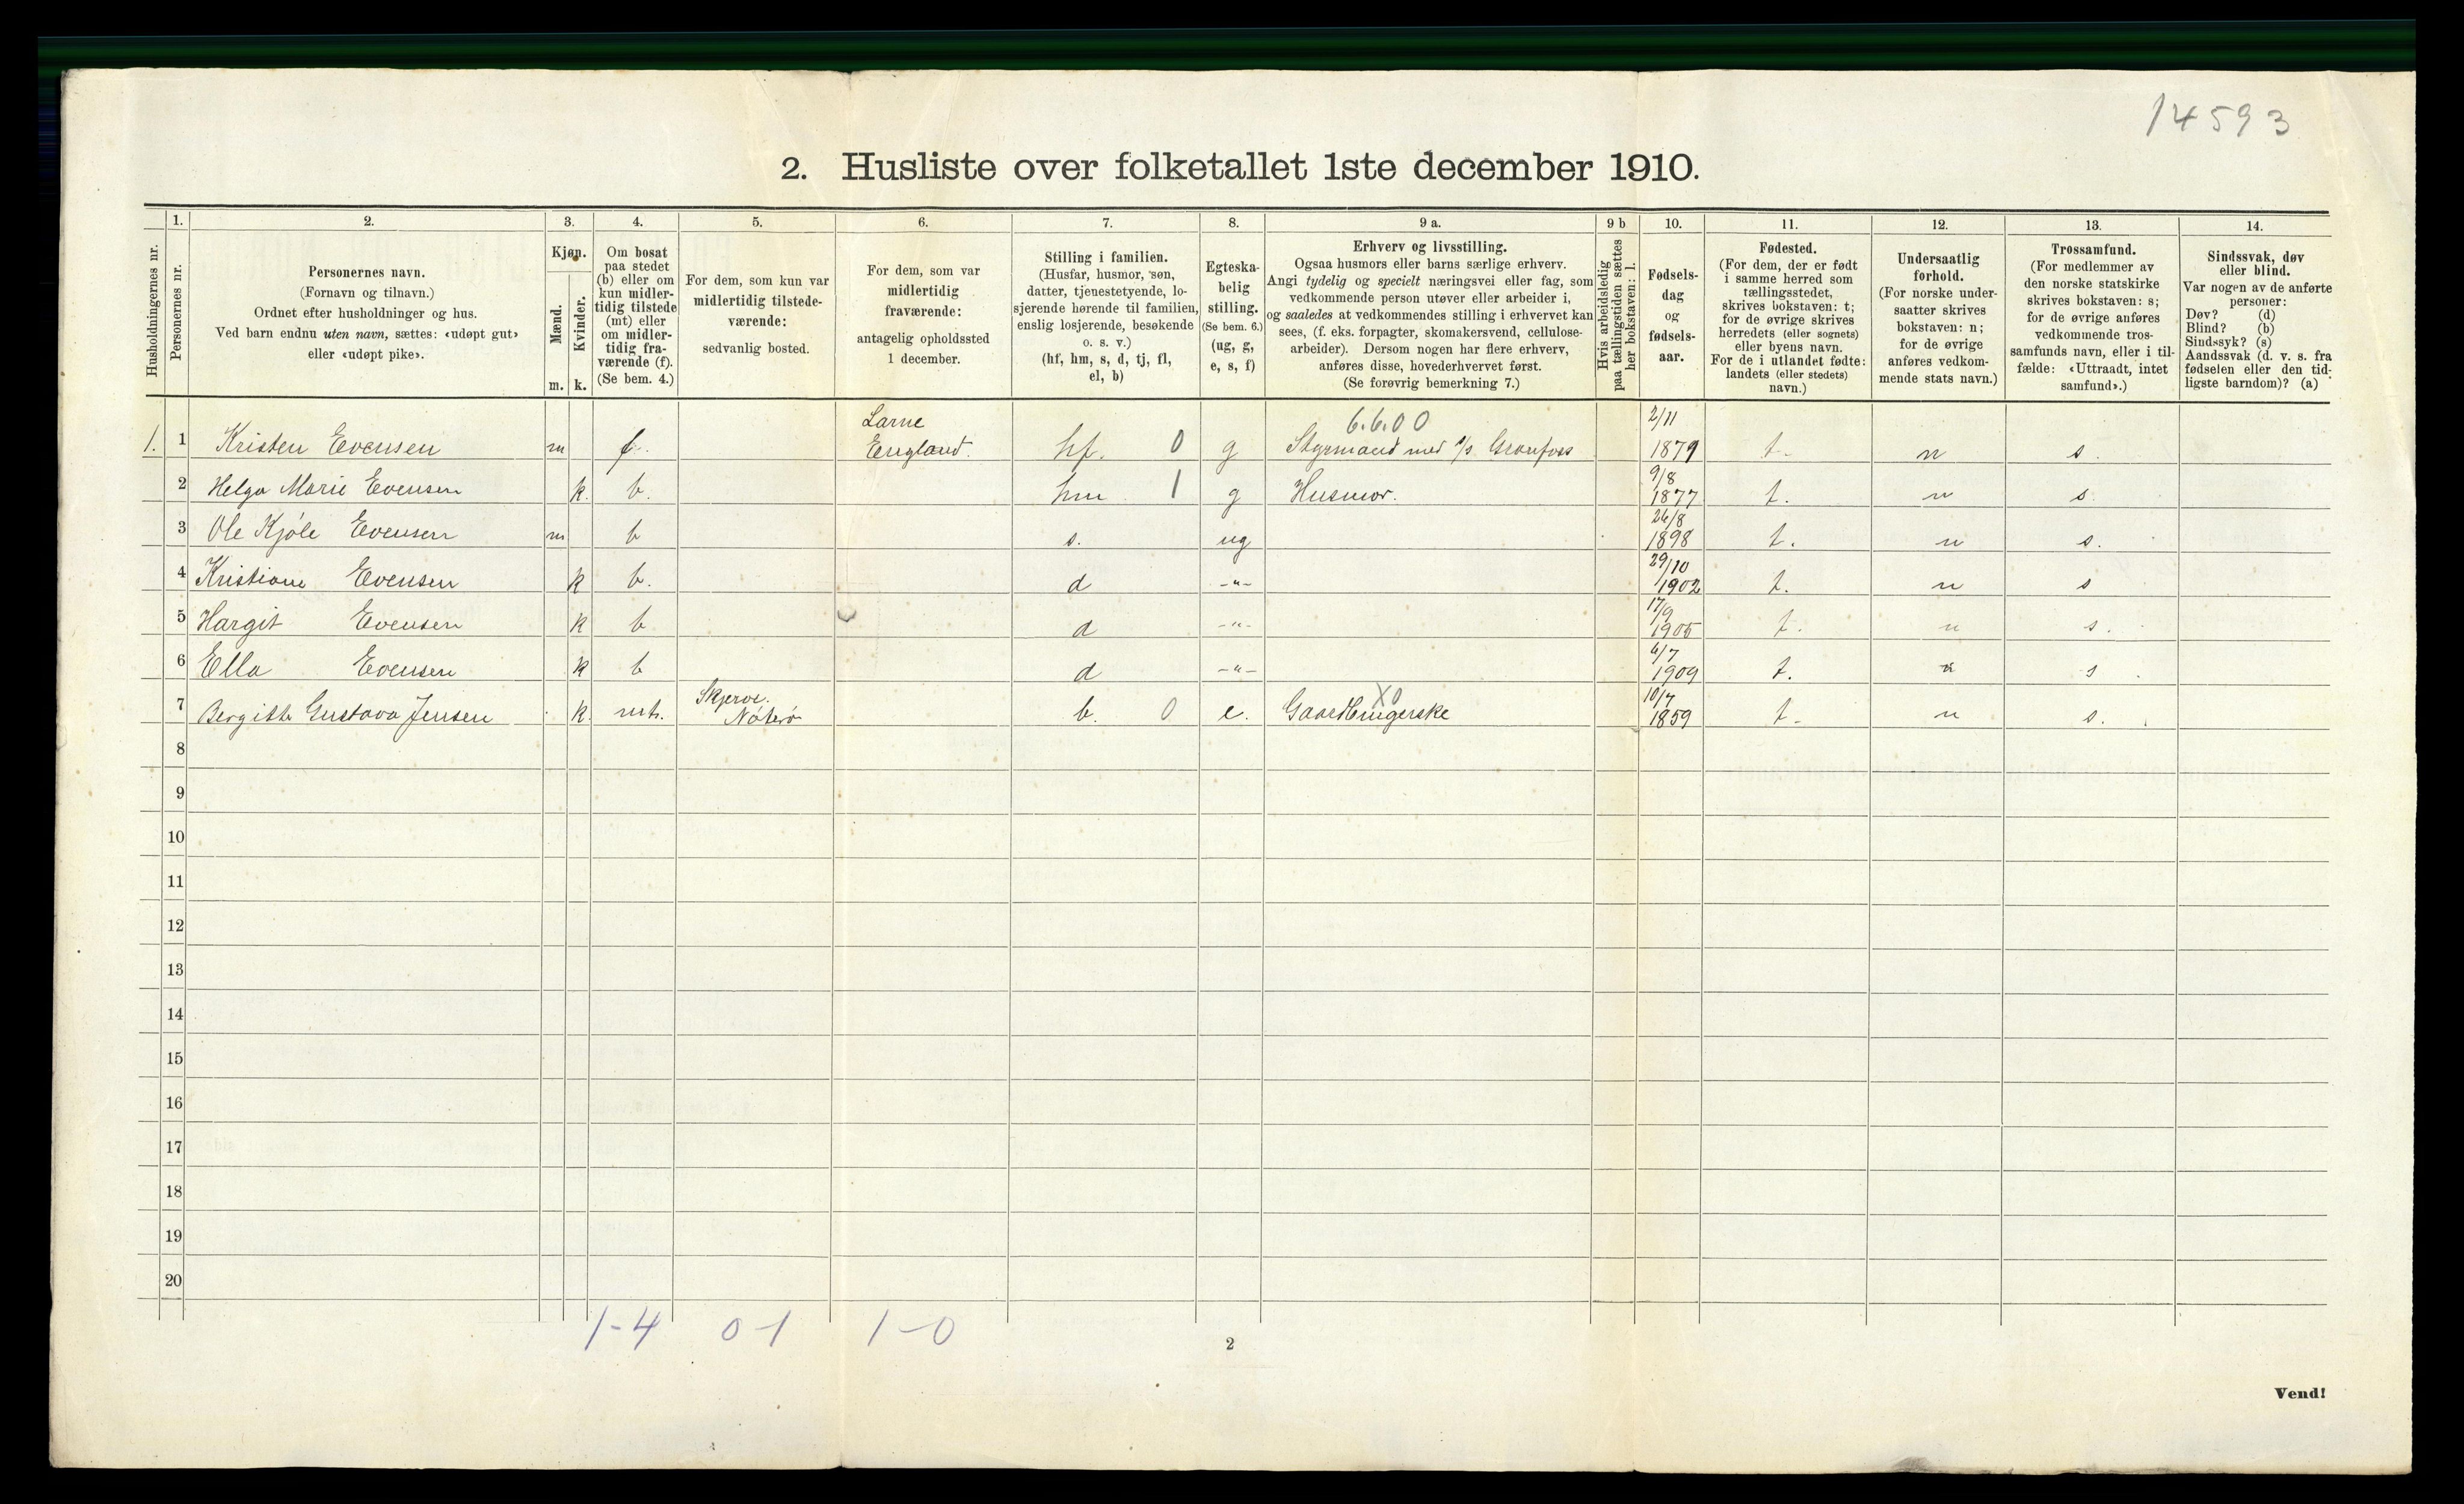 14593
2. Husliste over folketallet 1ste december 1910.
1. 2. 3. 4. 5. 6. 7. 8. 9 a. 9 b 10. 11. 12. 13. 14.
Husholdningernes nr.
Personernes nr.
Personernes navn.
(Fornavn og tilnavn.)
Ordnet efter husholdninger og hus.
Ved barn endnu uten navn, sættes: «udøpt gut»
eller «udøpt pike».
Kjøn.
Mænd.
Kvinder.
m. k.
Om bosat
paa stedet
(b) eller om
kun midler-
tidig tilstede
(mt) eller
om midler-
tidig fra-
værende (f).
(Se bem. 4.)
For dem, som kun var
midlertidig tilstede-
værende:
sedvanlig bosted.
For dem, som var
midlertidig
fraværende:
antagelig opholdssted
1 december.
Stilling i familien.
(Husfar, husmor, søn,
datter, tjenestetyende, lo-
sjerende hørende til familien,
enslig losjerende, besøkende
o. s. v.)
(hf, hm, s, d, tj, fl,
el, b)
Egteska-
belig
stilling.
(Se bem. 6.)
(ug, g,
e, s, f)
Erhverv og livsstilling.
Ogsaa husmors eller barns særlige erhverv.
Angi tydelig og specielt næringsvei eller fag, som
vedkommende person utøver eller arbeider i,
og saaledes at vedkommendes stilling i erhvervet kan
sees, (f. eks. forpagter, skomakersvend, cellulose-
arbeider). Dersom nogen har flere erhverv,
anføres disse, hovederhvervet først.
(Se forøvrig bemerkning 7.)
Hvis arbeidsledig
paa tællingstiden sættes
her bokstaven: l.
Fødsels-
dag
og
fødsels-
aar.
Fødested.
(For dem, der er født
i samme herred som
tællingsstedet,
skrives bokstaven: t;
for de øvrige skrives
herredets (eller sognets)
eller byens navn.
For de i utlandet fødte:
landets (eller stedets)
navn.)
Undersaatlig
forhold.
(For norske under-
saatter skrives
bokstaven: n;
for de øvrige
anføres vedkom-
mende stats navn.)
Trossamfund.
(For medlemmer av
den norske statskirke
skrives bokstaven: s;
for de øvrige anføres
vedkommende tros-
samfunds navn, eller i til-
fælde: «Uttraadt, intet
samfund».)
Sindssvak, døv
eller blind.
Var nogen av de anførte
personer:
Døv? (d)
Blind? (b)
Sindssyk? (s)
Aandssvak (d. v. s. fra
fødselen eller den tid-
ligste barndom)? (a)
Larne 6.6.00 2/11
1. 1 Kristen Evensen m f. England. hf. 0 g Styrmand med s/s Granfoss 1879 t. n s.
9/8
2 Helga Marie Evensen k. b. hm 1 g Husmor. 1877 t. n s
26/8
3 Ole Kjøle Evensen m b s. ug 1898 t. n s.
29/10
4 Kristiane Evensen k b. d -"- 1902 t. n s
17/9
5 Hargit Evensen k b d -"- 1905 t. n s.
6/7
6 Ella Evensen k b d -"- 1909 t. n s
Skjerve. X0 10/7
7 Bergitte Gustava Jensen k. mt. Nøterø b. 0 e. Gaardbrugerske 1859 t. n s.
8
9
10
11
12
13
14
15
16
17
18
19
20
1-4 0-1 1-0
2
Vend!